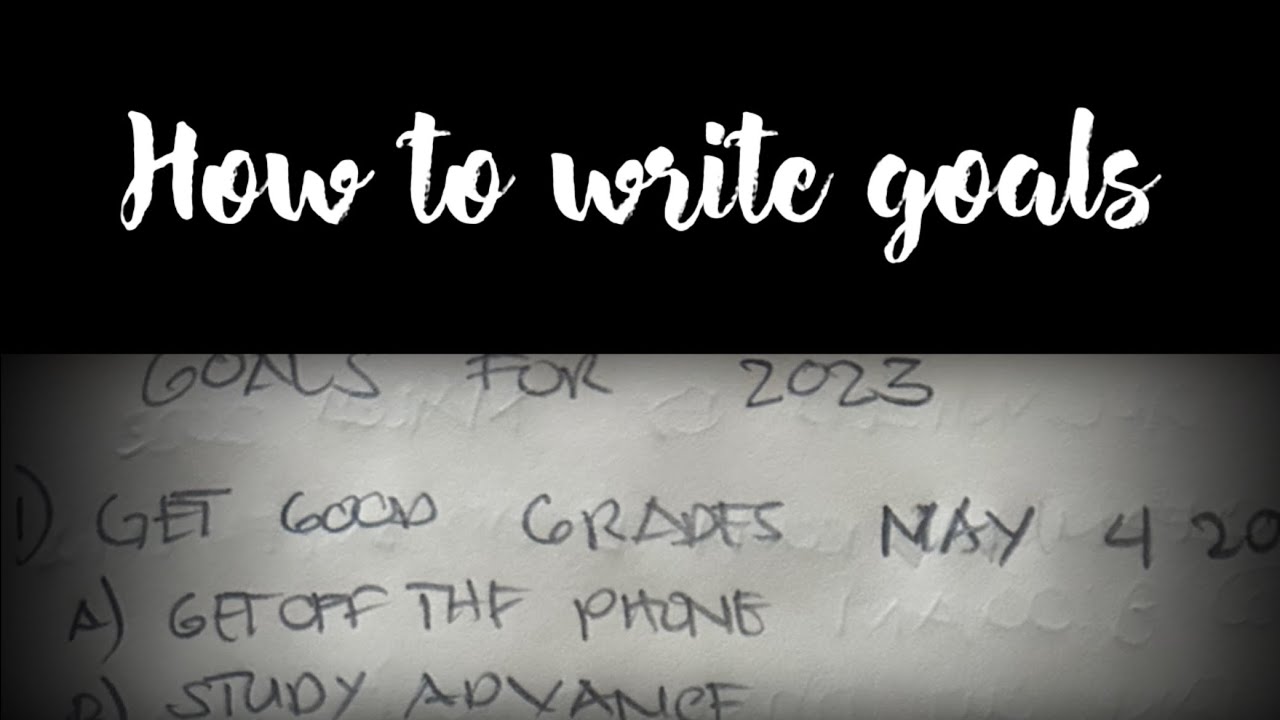 How to write goals
GOALS FOR 2023
1) GET GOOD GRADES MAY 4 20
A) GET OFF THE PHONE
B) STUDY ADVANCE